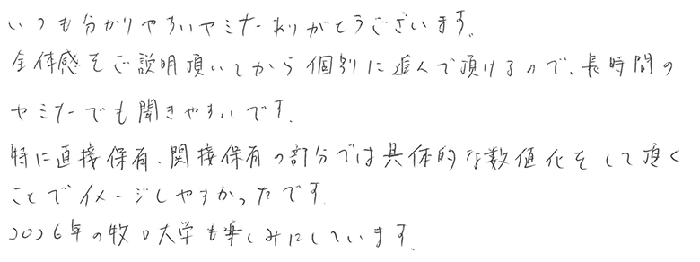 いつも分かりやすいセミナーありがとうございます。
全体感をご説明頂いてから個別に進んで頂けるので、長時間の
セミナーでも聞きやすいです。
特に直接保有、間接保有の部分では具体的な数値化をして頂く
ことでイメージしやすかったです。
2026年の牧口大学も楽しみにしています。